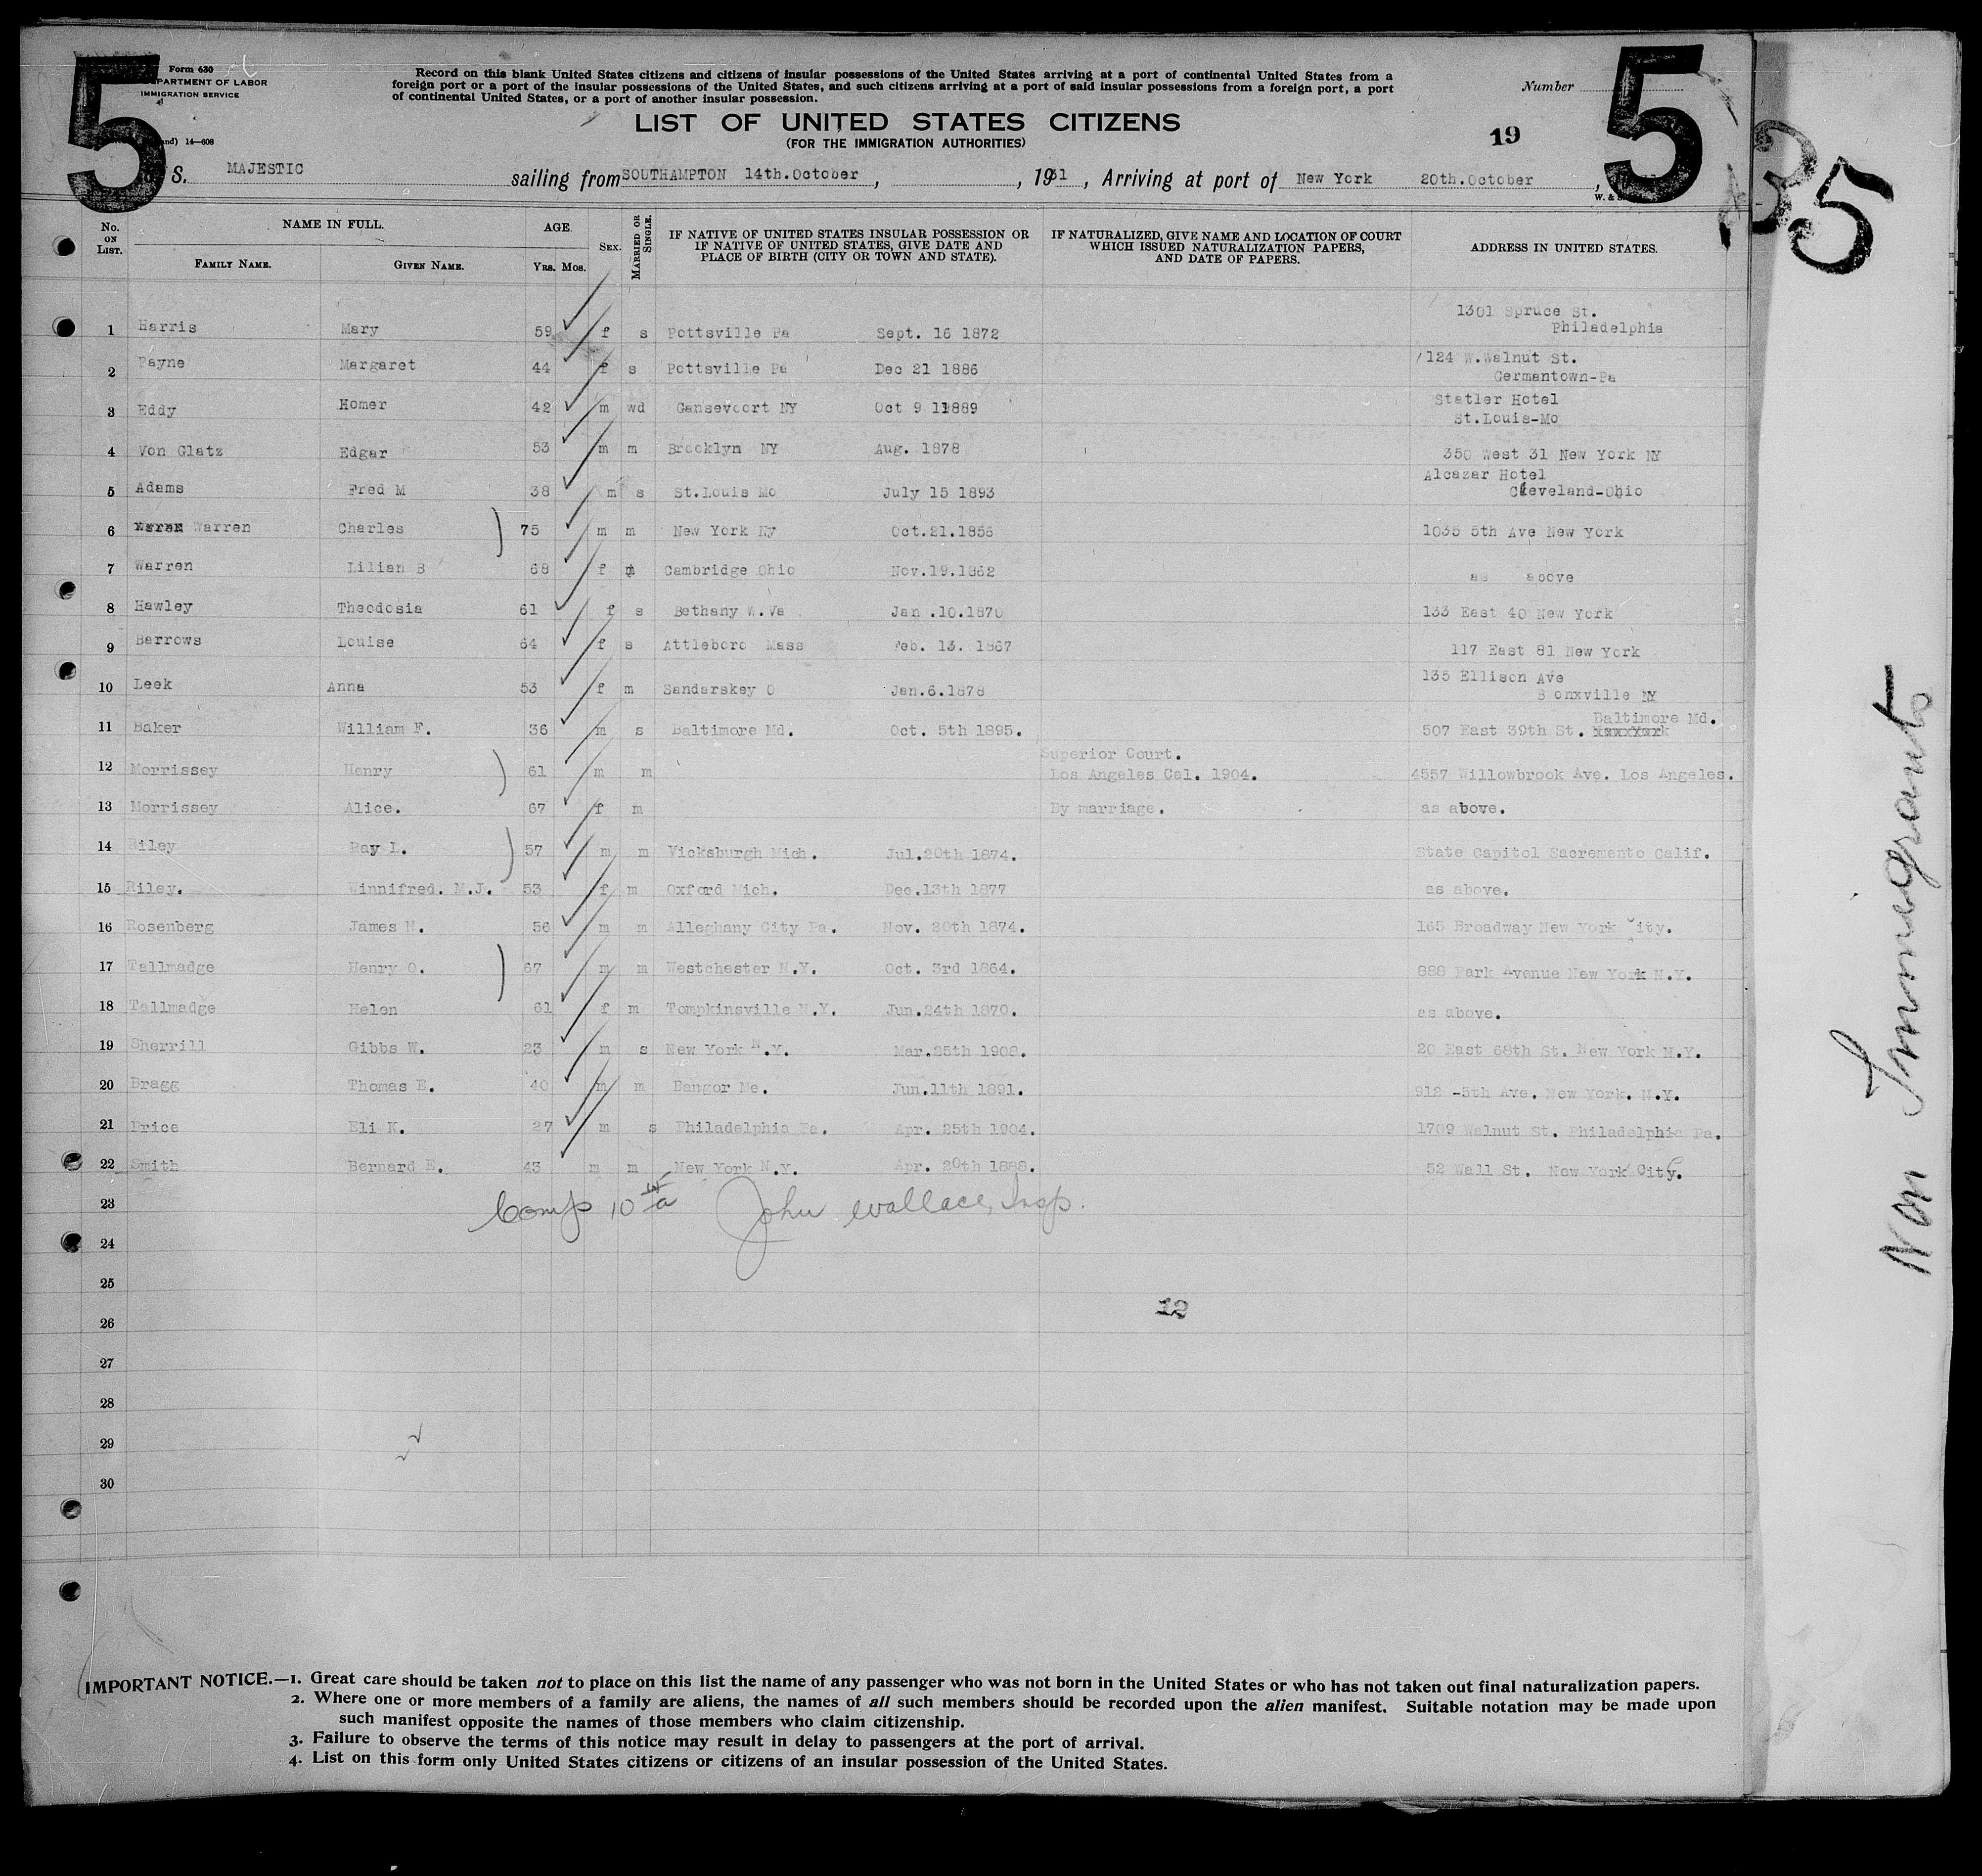 5
Form 630
DEPARTMENT OF LABOR
IMMIGRATION SERVICE
14—608
Record on this blank United States citizens and citizens of insular possessions of the United States arriving at a port of continental United States from a
foreign port or a port of the insular possessions of the United States, and such citizens arriving at a port of said insular possessions from a foreign port, a port
of continental United States, or a port of another insular possession.
Number
5
LIST OF UNITED STATES CITIZENS
(FOR THE IMMIGRATION AUTHORITIES)
19
35
S. MAJESTIC sailing from SOUTHAMPTON 14th.October, , 1931, Arriving at port of New York 20th.October,
No. ON LIST. NAME IN FULL. AGE. SEX. MARRIED OR SINGLE. IF NATIVE OF UNITED STATES INSULAR POSSESSION OR IF NATIVE OF UNITED STATES, GIVE DATE AND PLACE OF BIRTH (CITY OR TOWN AND STATE). IF NATURALIZED, GIVE NAME AND LOCATION OF COURT WHICH ISSUED NATURALIZATION PAPERS, AND DATE OF PAPERS. ADDRESS IN UNITED STATES.
FAMILY NAME. GIVEN NAME. Yrs. Mos.
1 Harris Mary 59 f s Pottsville Pa Sept. 16 1872 1301 Spruce St. Philadelphia
2 Payne Margaret 44 f s Pottsville Pa Dec 21 1886 124 W.Walnut St. Germantown-Pa
3 Eddy Homer 42 m wd Gansevoort NY Oct 9 11889 Statler Hotel St.Louis-Mo
4 Von Glatz Edgar 53 m m Brooklyn NY Aug. 1878 350 West 31 New York NY
5 Adams Fred M 38 m s St.Louis Mo July 15 1893 Alcazar Hotel Cleveland-Ohio
6 Warren Charles 75 m m New York Ny Oct.21.1856 1035 5th Ave New York
7 Warren Lilian B 68 f m Cambridge Ohio Nov.19.1862 as above
8 Hawley Theodosia 61 f s Bethany W.Va Jan .10.1870 133 East 40 New York
9 Barrows Louise 64 f s Attleboro Mass Feb. 13. 1867 117 East 81 New York
10 Leek Anna 53 f m Sandarskey O Jan.6.1878 135 Ellison Ave B onxville NY
11 Baker William F. 36 m s Baltimore Md. Oct. 5th 1895. 507 East 39th St. Baltimore Md.
12 Morrissey Henry 61 m m Superior Court. Los Angeles Cal. 1904. 4557 Willowbrook Ave. Los Angeles.
13 Morrissey Alice. 67 f m By marriage. as above.
14 Riley Ray L. 57 m m Vicksburgh Mich. Jul.20th 1874. State Capitol Sacremento Calif.
15 Riley. Winnifred. M.J. 53 f m Oxford Mich. Dec.13th 1877 as above.
16 Rosenberg James N. 56 m m Alleghany City Pa. Nov. 20th 1874. 165 Broadway New York City.
17 Tallmadge Henry O. 67 m m Westchester N.Y. Oct. 3rd 1864. 888 Park Avenue New York N.Y.
18 Tallmadge Helen 61 f m Tompkinsville N.Y. Jun.24th 1870. as above.
19 Sherrill Gibbs W. 23 m s New York N.Y. Mar.25th 1908. 20 East 68th St. New York N.Y.
20 Bragg Thomas E. 40 m m Bangor Me. Jun.11th 1891. 912 -5th Ave. New York. N.Y.
21 Price Eli K. 27 m s Philadelphia Pa. Apr. 25th 1904. 1709 Walnut St. Philadelphia Pa.
22 Smith Bernard E. 43 m m New York N.Y. Apr. 20th 1888. 52 Wall St. New York City.
23 Comp 10 John Wallace, Insp.
24
25
12
26
27
28
29
30
IMPORTANT NOTICE.—1. Great care should be taken not to place on this list the name of any passenger who was not born in the United States or who has not taken out final naturalization papers.
2. Where one or more members of a family are aliens, the names of all such members should be recorded upon the alien manifest. Suitable notation may be made upon
such manifest opposite the names of those members who claim citizenship.
3. Failure to observe the terms of this notice may result in delay to passengers at the port of arrival.
4. List on this form only United States citizens or citizens of an insular possession of the United States.
Non Immigrants